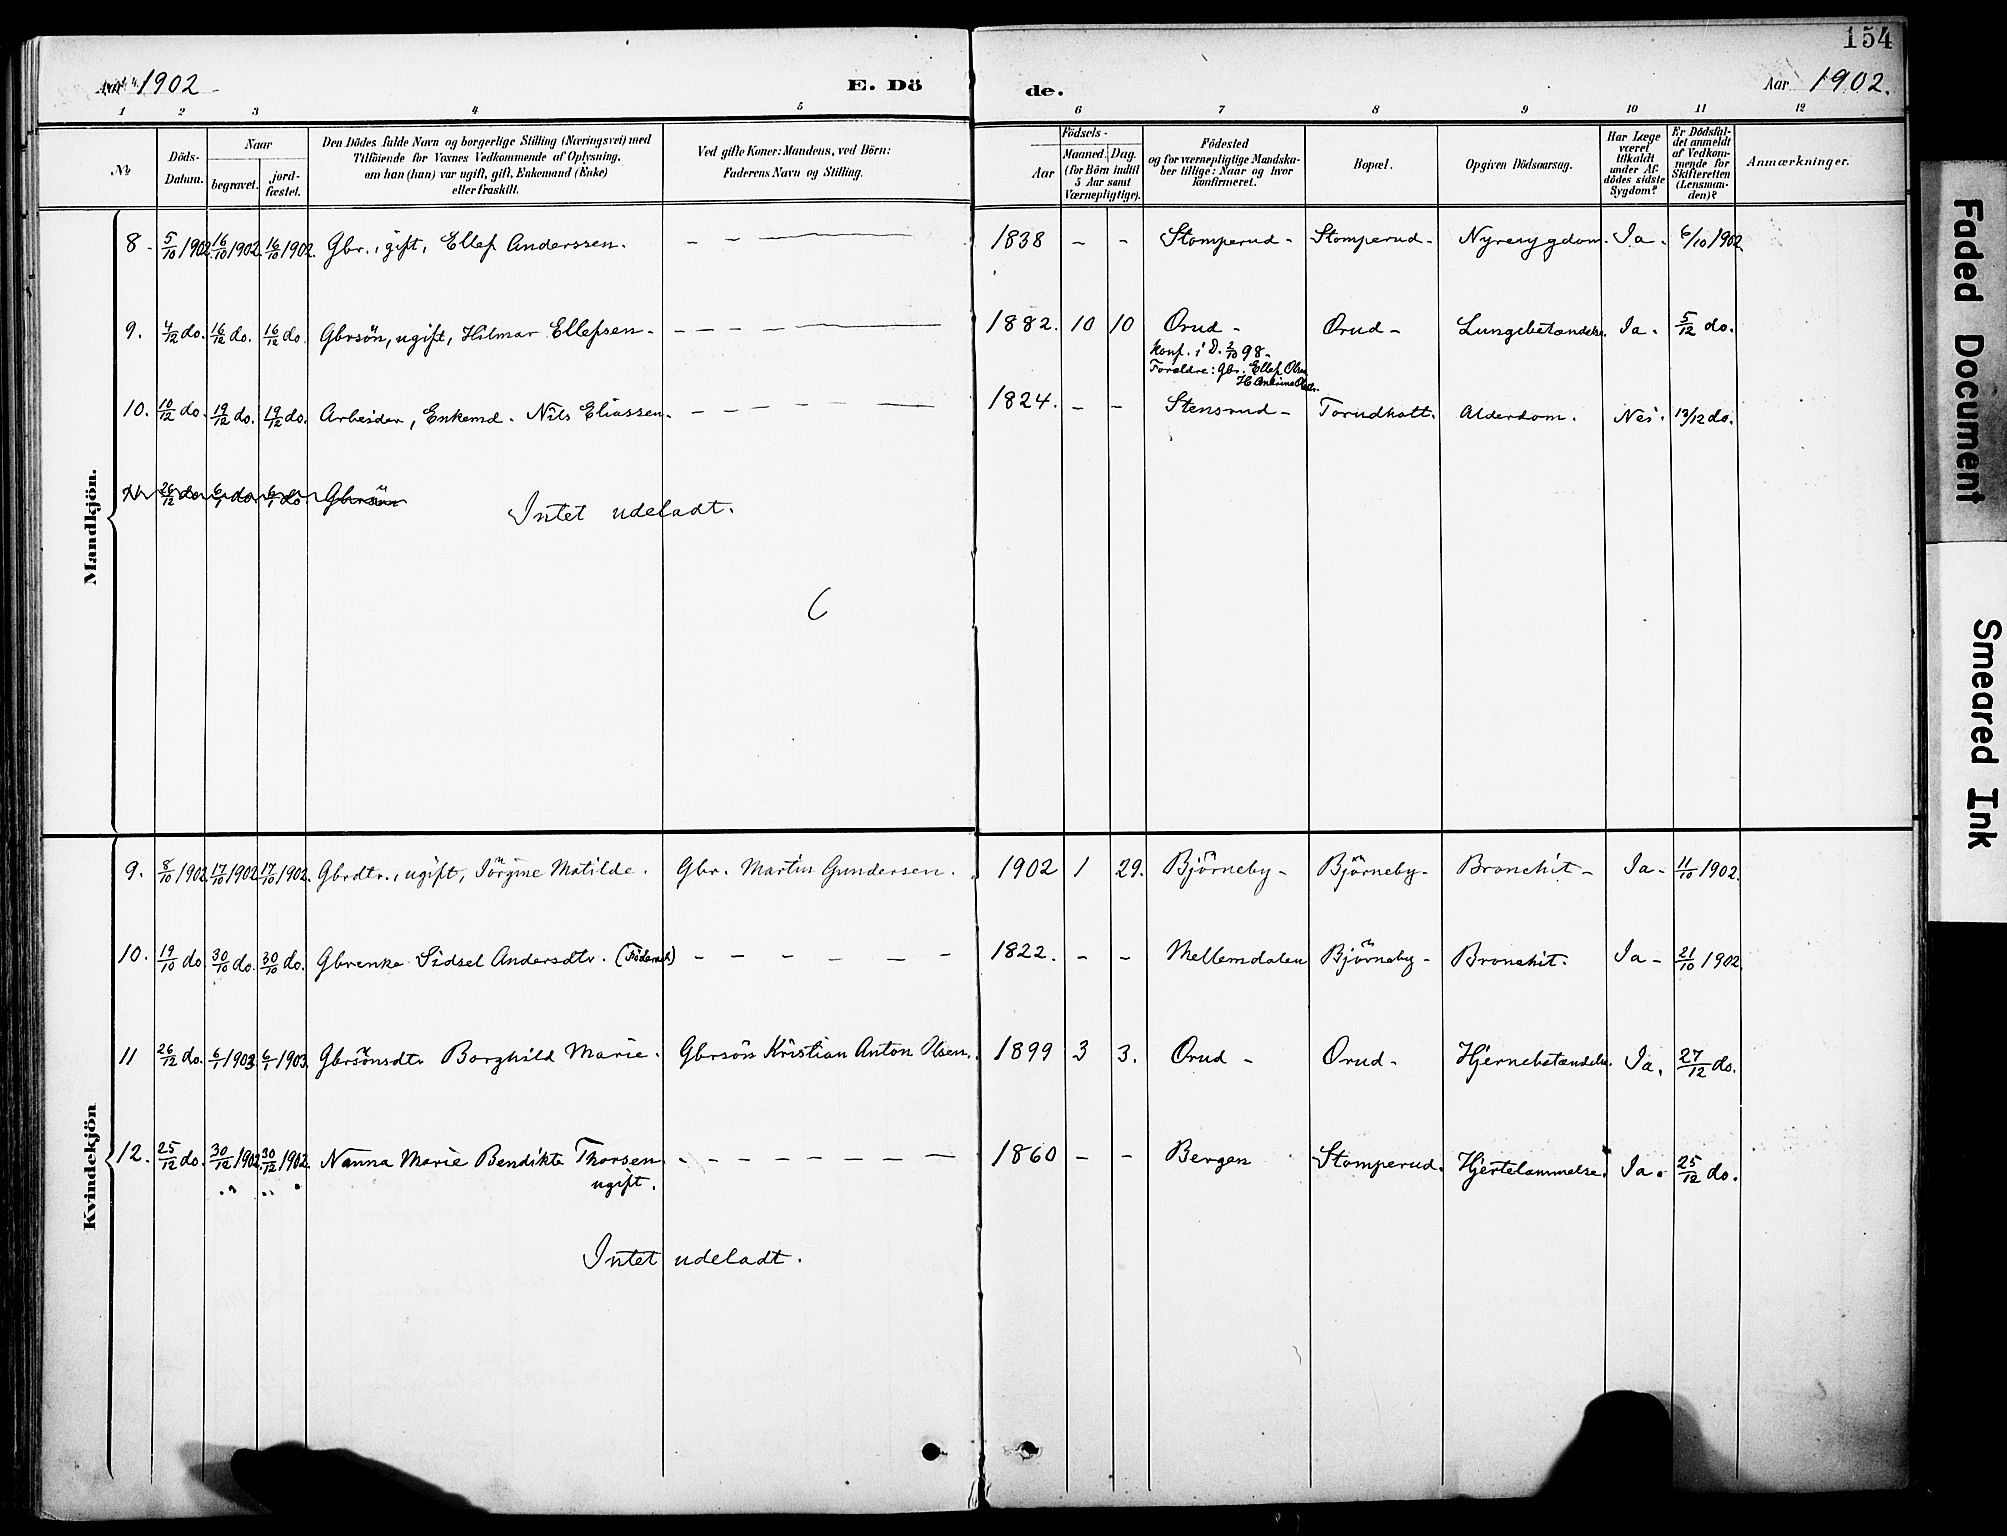 154
1902
E. Dö de.
Aar 1902.
1 2 3 4 5 6 7 8 9 10 11 12
№
Döds-Datum.
Naar
begravet.
jordfæstet.
Den Dödes fulde Navn og borgerlige Stilling (Næringsvei) med
Tilföiende for Voxnes Vedkommende af Oplysning,
om han (hun) var ugift, gift, Enkemand (Enke)
eller fraskilt.
Ved gifte Koner: Mandens, ved Börn:
Faderens Navn og Stilling.
Födsels-
Aar
Maaned. Dag.
(for Börn indtil
5 Aar samt
Værnepligtige).
Födested
og for værnepligtige Mandska-
ber tillige: Naar og hvor
konfirmeret.
Bopæl.
Opgiven Dödsaarsag.
Har Læge
været
tilkaldt
under Af-
dödes sidste
Sygdom?
Er Dödsfal-
det anmeldt
af Vedkom-
mende for
Skifteretten
(Lensman-
den)?
Anmærkninger.
Mandkjön.
8. 5/10 1902. 16/10 1902. 16/10 1902. Gbr., gift, Ellef Anderssen. - - — 1838 - - Stomperud - Stomperud - Nyresygdom. Ja. 6/10 1902
9. 4/12 do. 16/12 do. 16/12 do. Gbrsön, ugift, Hilmar Ellefsen - - - - — 1882. 10 10 Orud - Orud - Lungebetændelse. Ja. 5/12 do.
konf. i D. 2/10 98 -
Forældre: Gbr. Ellef Olsen
10. 10/12 do. 19/12 do. 19/12 do. Arbeider, Enkemd. Nils Eliassen. - - - - - - 1824. - - Stensrud - Torudkott. Alderdom. Nei. 13/12 do.
26/12 do. 6/1 do. 6/1 do. Gbrsön
Intet udeladt.
Kvindekjön
9. 8/10 1902. 17/10 1902. 17/10 1902. Gbrdtr., ugift, Jörgine Matilde. Gbr. Martin Gundersen. 1902 1 29. Björneby - Björneby - Bronchit - Ja - 11/10 1902.
10. 19/10 do 30/10 do. 30/10 do. Gbrenke Sidsel Andersdtr. (Föderaad) - - - - - - 1822. - - Mellemdalen Björneby - Bronchit. Ja - 21/10 1902.
11 26/12 do. 6/1 1903 6/1 1903. Gbrsönsdtr Borghild Marie. Gbrsön Kristian Anton Olsen. 1899 3 3. Orud - Orud - Hjernebetændelse. Ja. 27/12 do.
12. 25/12 do. 30/12 1902. 30/12 1902. Nanna Marie Bendikte Thorsen - - - - - - - 1860 - - Bergen Stomperud. Hjertelammelse. Ja. 25/12 do.
ugift.
Intet udeladt.
Faded Document
Smeared Ink